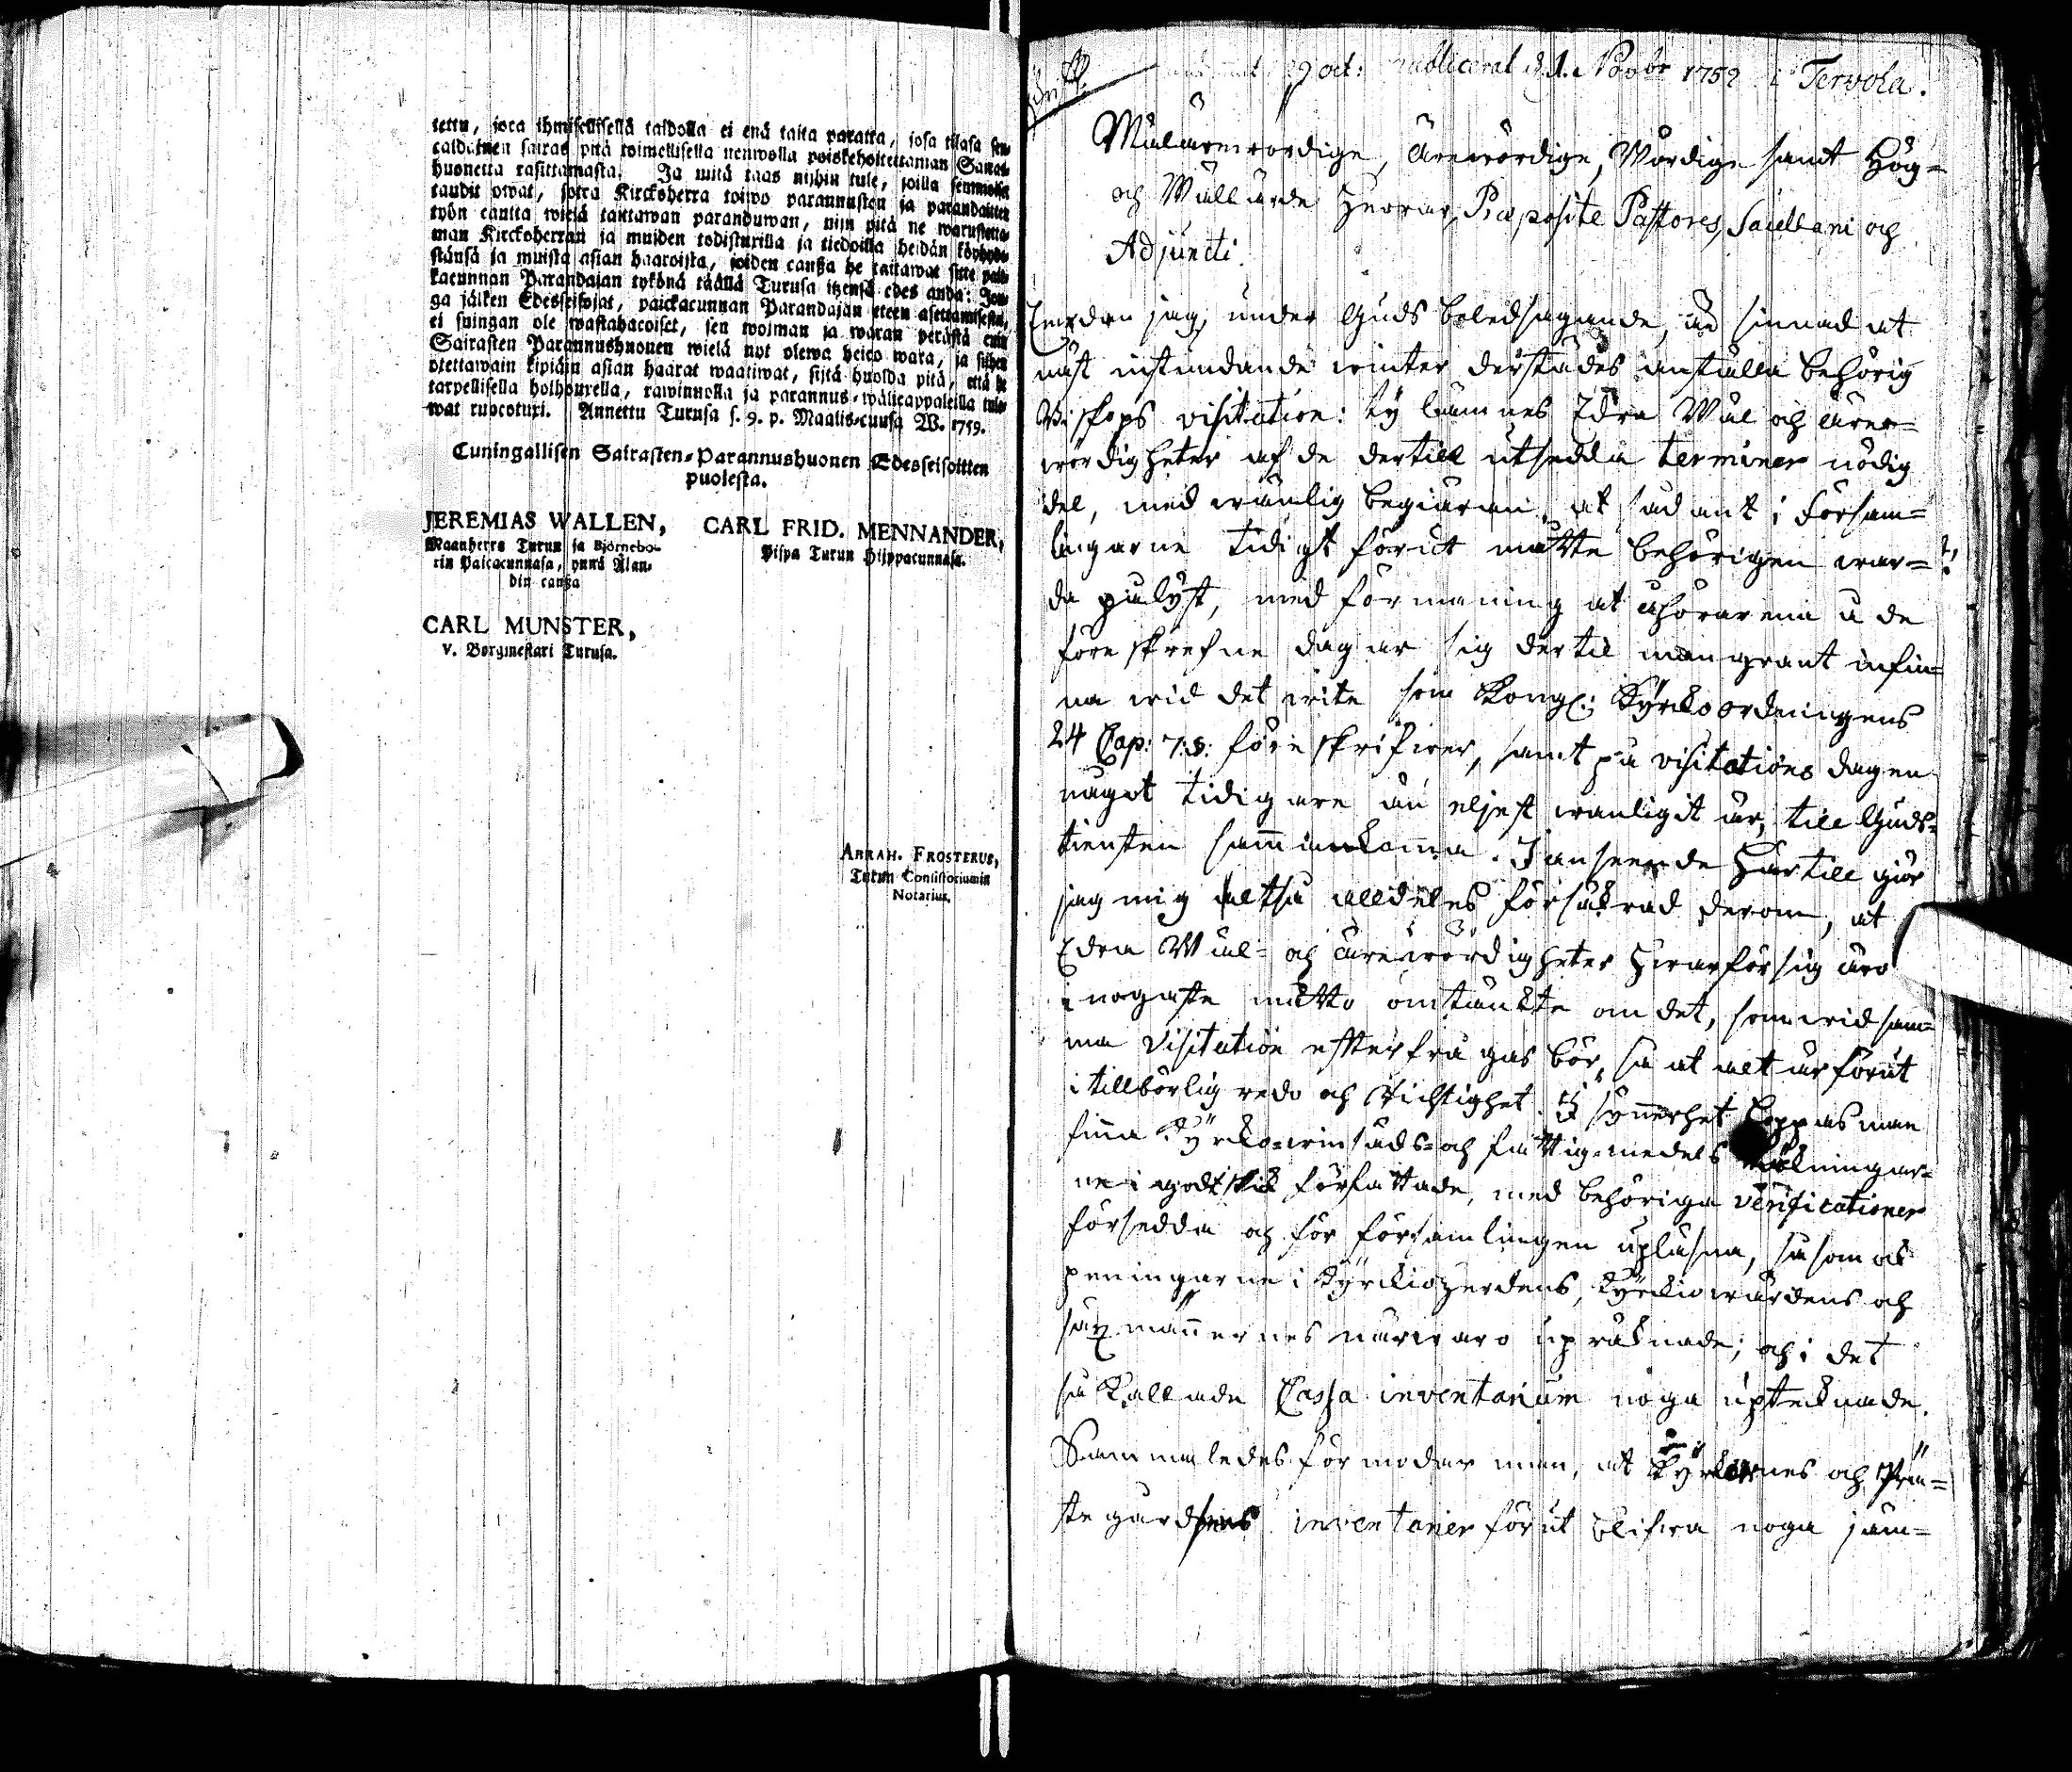 tettu, joca ihmisellisellä taidolla ei enä taita paratta, josa tilasa sen-
caldainen sairas pitä toimellisella neuwolla poiskehoitettaman Sairas-
huonetta rasittamasta. Ja mitä taas nijhin tule, joilla semmoiset
taudit owat, joita Kirckoherra toiwo parannusten ja parandaitten
työn cautta wielä taittawan paranduwan, nijn pitä ne warustetta-
man Kirckoherran ja muiden todisturilla ja tiedoilla heidän köyhyde-
stänsä ja muista asian haaroista, joiden canßa he taitawat sitte paic-
kacunnan Parandajan tykönä täällä Turusa itzensä edes anda: Jon-
ga jälken Edesseisojat, paickacunnan Parandajan eteen asettamisesta,
ei suingan ole wastahacoiset, sen woiman ja waran perästä cuin
Sairasten Parannushuonen wielä nyt olewa heico wara, ja siihen
otettawain kipiäin asian haarat waatiwat, sijtä huolda pitä, että he
tarpellisella holhourella, rawinnolla ja parannus-wälicappaleilla tule-
wat ruocotuxi. Annettu Turusa s. 9. p. Maalis-cuusa W. 1759.
Cuningallisen Sairasten-Parannushuonen Edesseisoitten
puolesta.
JEREMIAS WALLEN, CARL FRID. MENNANDER,
Maanherra Turun ja Björnebo- Pispa Turun Hijppacunnasa.
rin Paicacunnasa, ynnä Alan-
din canßa
CARL MUNSTER,
v. Borgmestari Turusa.
ABRAH. FROSTERUS,
Turun Consistoriumin
Notarius.
9 oct: publicerat d. 1. Novbr 1752 i Tervola.
Wälärewördige, Ärewördige, Wördige samt Hög-
och Wällärde Herrar, Præposite Pastores, Sacellani och
Adjuncti.
Emedan jag, under Guds beledsagande, är sinnad at
näst instundande winter derstädes anställa behörig
Biskops visitation: Ty lämnes Edra Wäl och ärer-
wördigheter af de dertill utsedda terminer nödig
del, med wänlig begiäran, at sådant i Försam-
lingarne tidigt förut måtte behörigen war-
da pålyst, med förmaning at åhörarena å de
föreskrefne dagar sig dertil mangrant infin-
na wid det wite som Kongl: Kyrckoordningens
24 Cap: 7:§: föreskrifwer, samt på visitations dagen
något tidigare än eljest wanligit är, till Guds-
tiensten sammankomma. I anseende härtill giör
jag mig altså alldeles försäkrad derom, at
Edra Wäl- och ärewördigheter hwar för sig äro
i nogaste måtto omtänckte om det, som wid sam-
ma Visitation efterfrågas bör, så at alt är förut
i tillbörlig redo och richtighet. I synnerhet hoppas man
finna Kyrcko-winsäds- och fattig-medels räkningar-
ne i godt skick författade, med behöriga verificationer
försedda och för församlingen upläsna, såsom ock
peningarne i Kyrckioherdens, Kyrckiowärdens och
sexmännernes närwaro upräknade; och i det
så kallade Cassa inventarium noga upteknade.
Sammaledes förmodar man, at Kyrckornes och Prä-
stegårdens inventarier förut blifwa noga jäm-